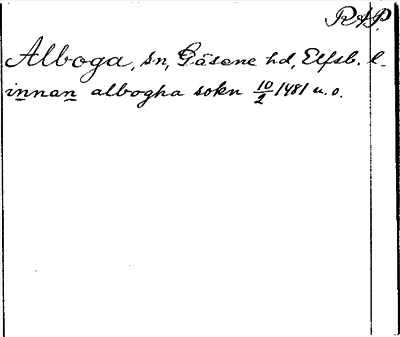 RAP.
Alboga, sn, Gäsene hd, Elfsb. l.
innan albogha sokn 10/2 1481 u. o.